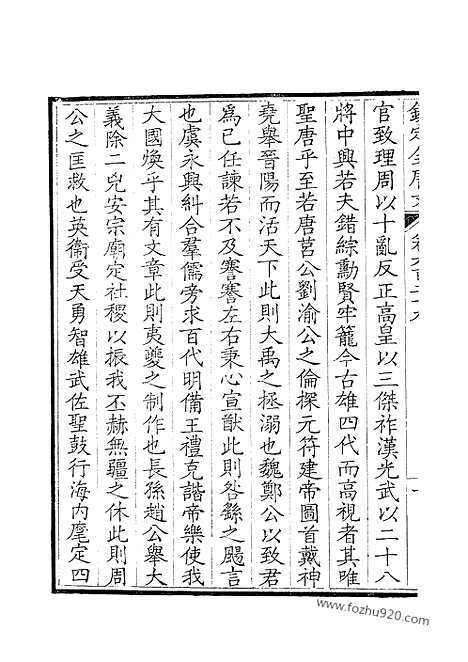 官致理周以十亂反正高皇以三傑祚漢光武以二十八
將中興若夫錯綜勳賢牢籠今古雄四代而高視者其唯
聖唐乎至若唐莒公劉渝公之倫探元符建帝圖首戴神
堯舉晉陽而活天下此則大禹之拯溺也魏鄭公以致君
爲已任諫若不及謇謇左右秉心宣猷此則咎繇之颺言
也虞永興糾合羣儒旁求百代明備王禮克諧帝樂使我
大國煥乎其有文章此則夷夔之制作也長孫趙公舉大
義除二兇安宗廟定社稷以振我丕赫無疆之休此則周
公之匡救也英衞受天勇智雄武佐聖鼓行海内麾定四
www.fozhu920.com